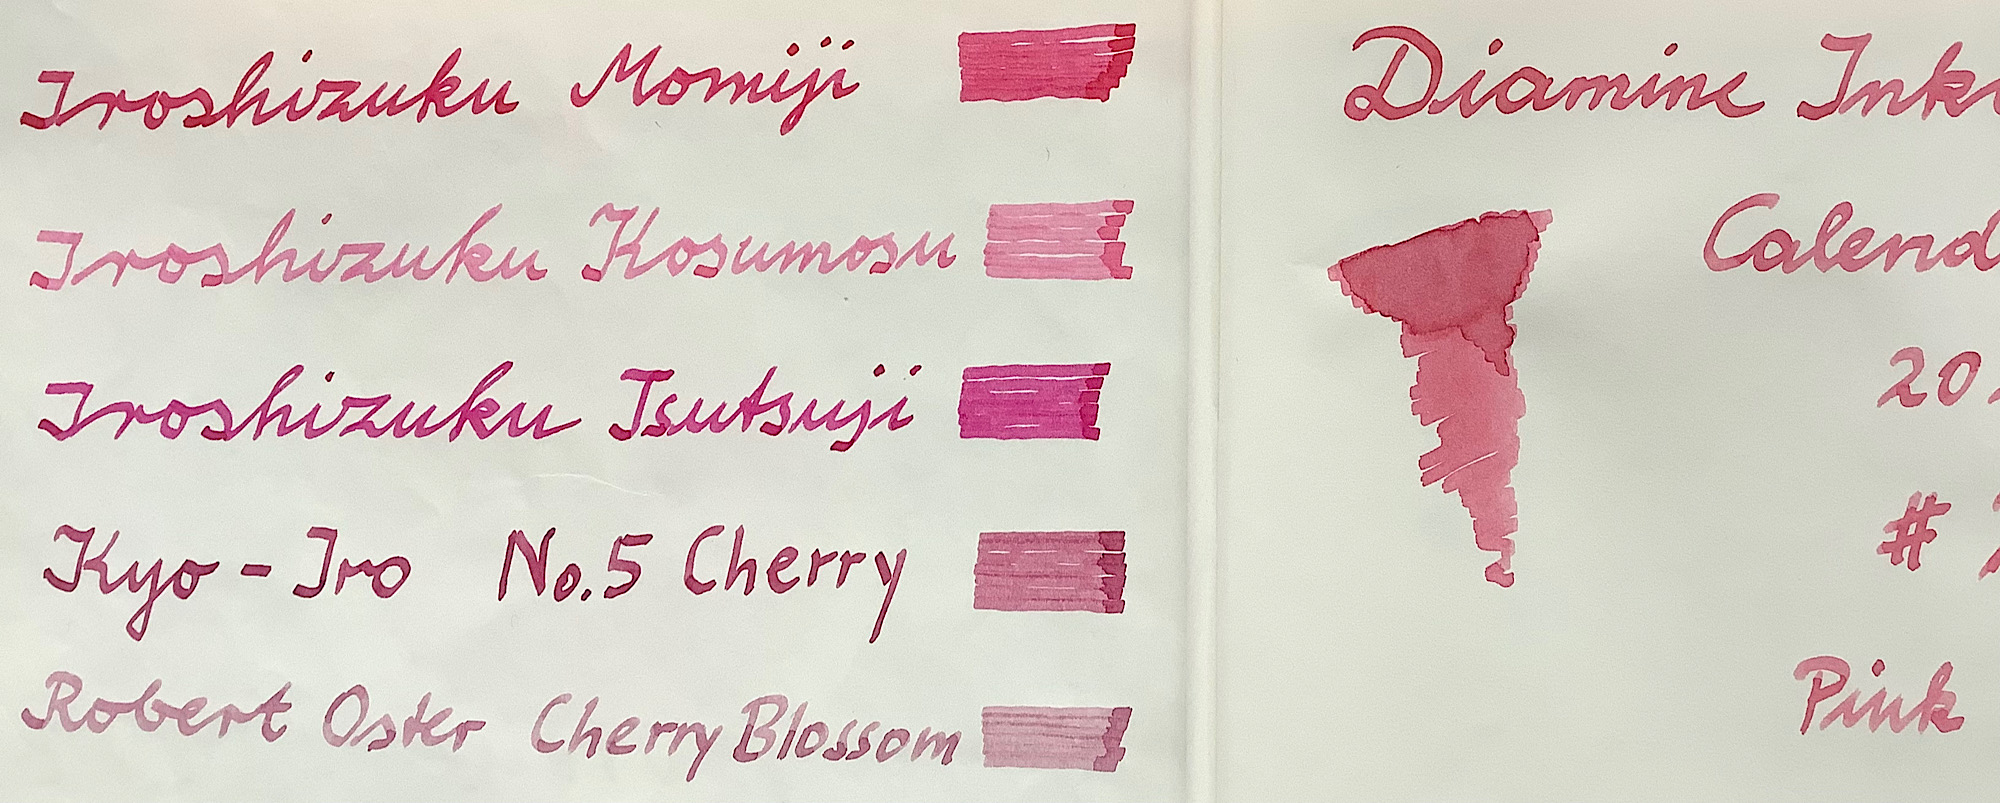 Iroshizuku Momiji
Iroshizuku Kosumosu
Iroshizuku Tsutsuji
Kyo-Iro No.5 Cherry
Robert Oster Cherry Blossom
Diamine Ink
Calend
20
#
Pink